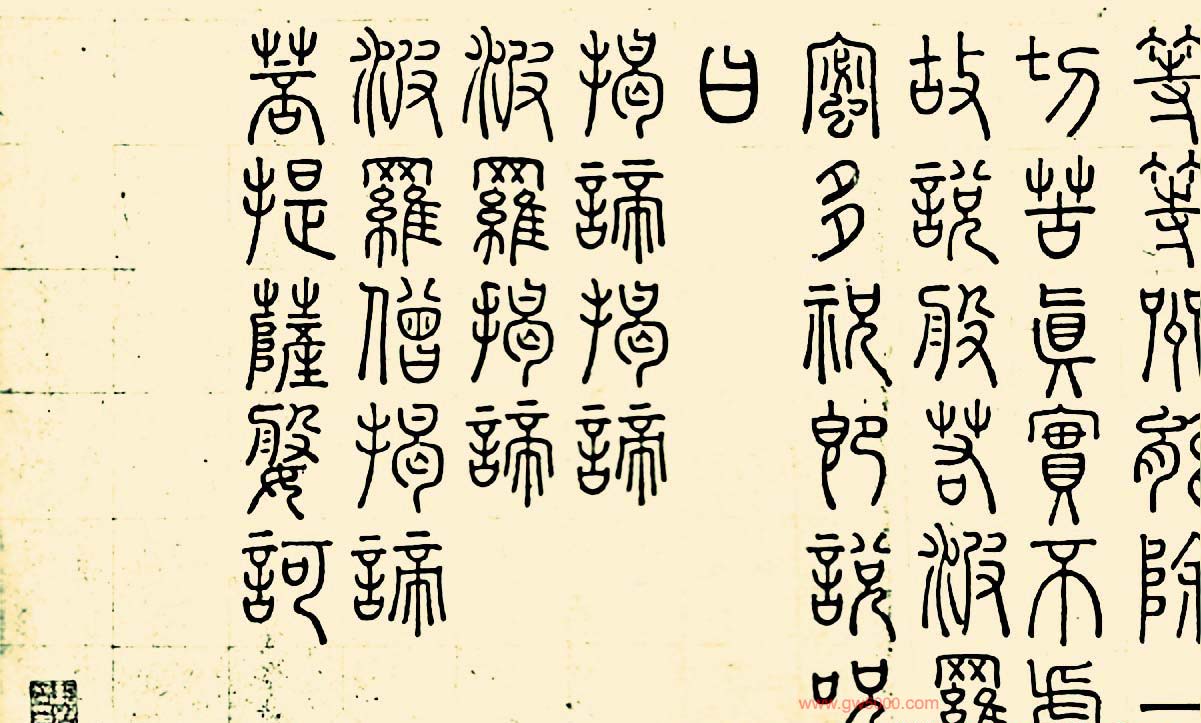 等等咒能除一
切苦真實不虛
故說般若波羅
蜜多祝即說咒
曰
揭諦揭諦
波羅揭諦
波羅僧揭諦
菩提薩婆訶
www.gw8000.com